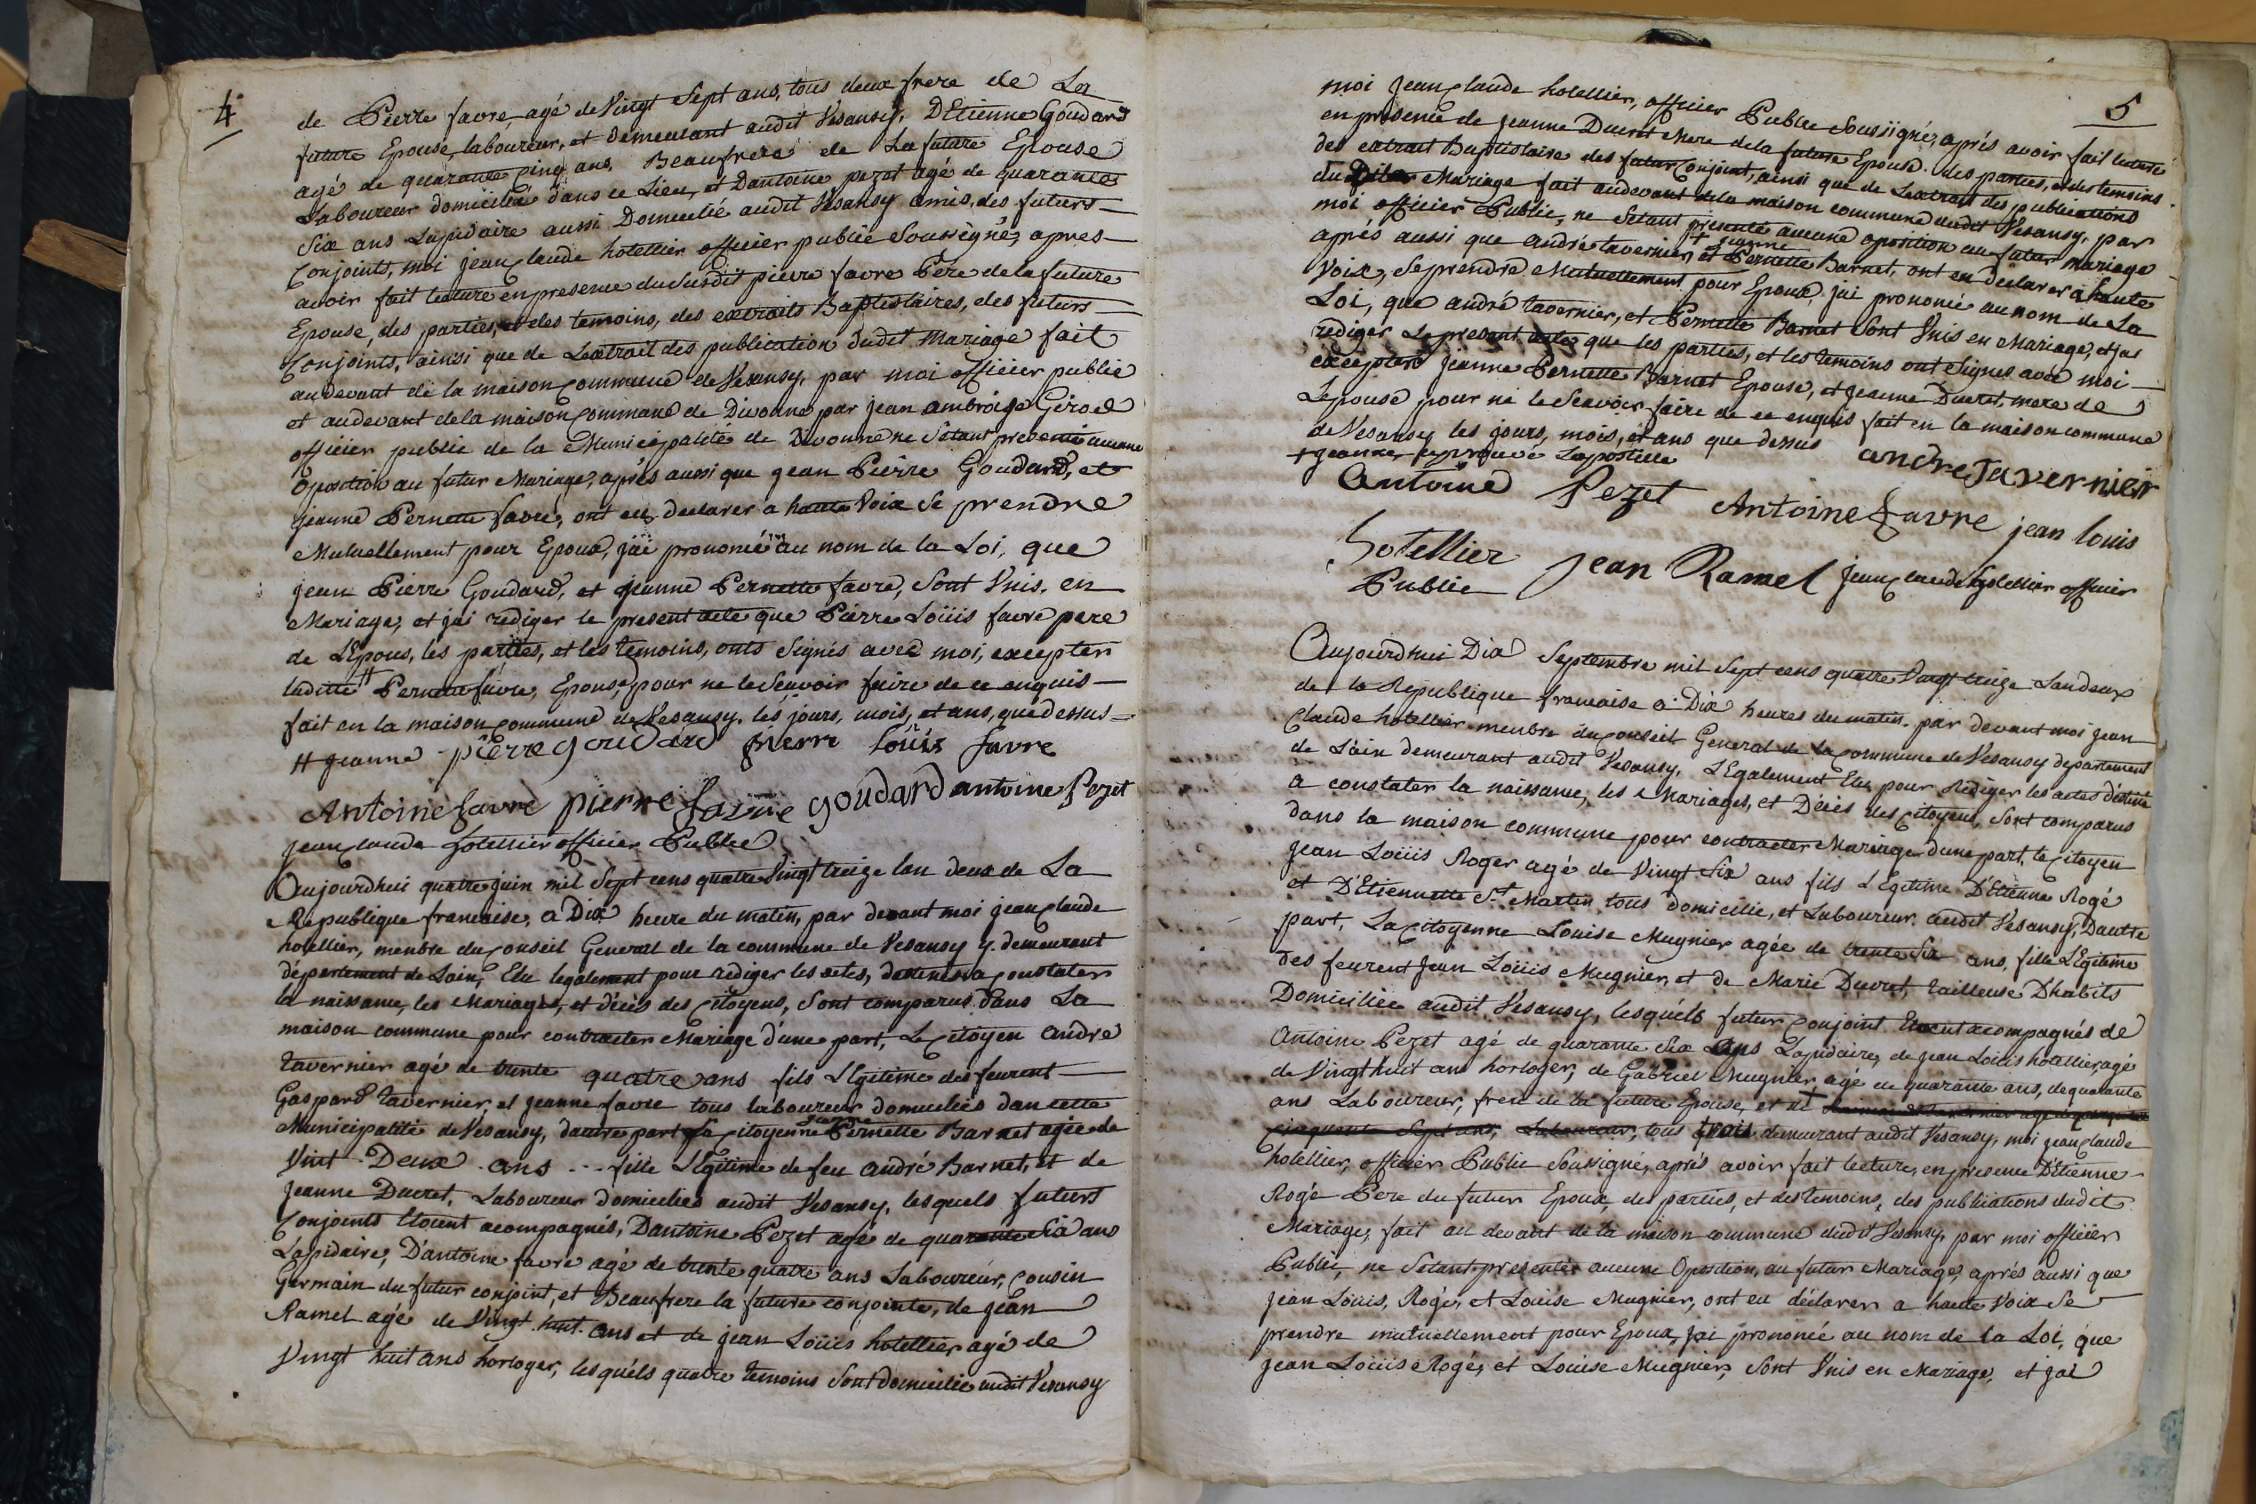 4
de Pierre favre, agé de Vingt Sept ans, tous deux frere de La
future Epouse, laboureur, et demeurant audit Vesansy, D'Etienne Goudard
agé de quarante Cinq ans, Beaufrere de La future Epouse
Laboureur domicilié dans ce Lieu, et Dantoine pezet agé de quarante
Six ans Lapidaire aussi Domicilié audit Vesansy amis, des futurs
Conjoints, moi jean Claude hotellier officier public Soussigné, apres
avoir fait lecture en presence du Susdit pierre favre Père de la future
Epouse, des parties, et des temoins, des extraits Baptistaires, des futurs
Conjoints, ainsi que de Lextrait des publication dudit Mariage fait
audevant de la maison Commune de Vesansy, par moi officier public
et audevant de la maison Commune de Divonne par jean ambroise Girod
officier public de la Municipalité de Divonne ne Setant presenté aucune
Oposition au futur Mariage, après aussi que jean Pierre Goudard, et
jeanne Pernette favre, ont eu, declarer a haute Voix Se prendre
Mutuellement pour Epoux, j'ai prononcé au nom de la Loi, que
jean Pierre Goudard, et jeanne Pernette favre, Sont Unis, en
Mariage, et j'ai rediger le present acte que Pierre Loüis favre pere
de L'Epous, les parties, et les temoins, onts Signés avec moi, excepter
laditte # Pernette favre, Epouse, pour ne le Scavoir faire de ce enquis
fait en la maison Commune de Vesansy, les jours, mois, et ans, que dessus
# jeanne pierre goudard pierre louis favre
Antoine favre pierre favre goudard antoine Pezet
jean Claude hotellier officier Public
Aujourdhui quatre juin mil Sept cens quatre Vingt treize lan deux de La
Republique francaise, a Dix heure du matin, par devant moi jean Claude
hotellier, menbre du Conseil General de la commune de Vesansy y demeurant
département de Lain, Elu legalement pour rediger les actes, destinés a Constater
la naissance, les Mariages, et décès des Citoyens, Sont comparus dans La
maison commune pour contracter Mariage d'une part, Le Citoyen andré
tavernier agé de trente quatre ans fils Légitime des feurent
Gaspard tavernier, et jeanne favre tous laboureur domiciliés dan cette
Municipalité de Vesansy, dautre part La Citoyenne jeanne Pernette Barnet agée de
Vint Deux ans fille Légitime de feu andré Barnet, et de
jeanne Ducret, Laboureur domiciliés audit Vesansy, lesquels futurs
Conjoints Etoient acompagnés, Dantoine Pezet agé de quarante Six ans
Lapidaire, D'antoine favre agé de trente quatre ans Laboureur, Cousin
Germain du futur conjoint, et Beaufrere la future conjointe, de jean
Ramel agé de Vingt huit ans et de jean Loüis hotellier agé de
Vingt huit ans horloger, lesquels quatre temoins Sont domicilie audit Vesansy
5
moi jean Claude hotellier, officier Public Soussigné, aprés avoir fait lecture
en presence de jeanne Ducret Mere de la future Epouse, des parties, et des temoins
des extrait Baptistaire des futur Conjoint, ainsi que de Lextrait des publications
du Mariage fait audevant de la maison commune audit Vesansy, par
moi officier Public, ne Setant presenté aucune oposition au futur Mariage
aprés aussi que andré tavernier, et + jeanne Pernette Barnet, ont eu declarer a haute
Voix, Se prendre Mutuellement pour Epoux, j'ai prononcé au nom de La
Loi, que andré tavernier, et Pernette Barnet Sont Unis en Mariage, et j'ai
rediger Le present acte que les parties, et les temoins ont Signés avec moi
excepter jeanne Pernette Barnet Epouse, et jeanne Ducret, mere de
Lepouse pour ne le Scavoir faire de ce enquis fait en la maison commune
de Vesansy les jours, mois, et ans que dessus andre Tavernier
+ jeanne, aprouvé Lapostille
Antoine Pezet Antoine favre jean louis
hotellier jean Ramel jean Claude hotellier officier
Public
Aujourdhui Dix Septembre mil Sept cens quatre Vingt treize Landeux
de la Republique francaise a Dix heures du matin, par devant moi jean
Claude hotellier menbre du Conseil General de la Commune de Vesansy departement
de Lain demeurant audit Vesansy, Légalement Elu pour Rédiger les actes déstiné
a constater la naissance, les Mariages, et Décès des Citoyens, Sont comparus
dans la maison commune pour contracter Mariage dune part, le Citoyen
jean Loüis Roger agé de Vingt Six ans fils Légitime D'Etienne Rogé
et D'Etiennette St Martin tous domicilie, et Laboureur audit Vesansy, Dautre
part, La Citoyenne Louise Mugnier agée de trente Six ans, fille Légitime
des feurent jean Loüis Mugnier, et de Marie Ducret, tailleuse Dhabits
Domiciliée audit Vesansy, lesquéls futur Conjoint Etoient acompagnés de
antoine Pezet agé de quarante Six ans Lapidaire, de jean Loüis hotellier, agé
de Vingt huit ans horloger, de Gabriel Mugnier agé de quarante ans, de quarante
ans Laboureur, frere de la future Epouse, et
tous trois demeurant audit Vesansy, moi jean Claude
hotellier, officier Public Soussigné, aprés avoir fait lecture, en presence D'Etienne
Rogé Pere du futur Epoux, des parties, et des temoins, des publications dudit
Mariage, fait au devant de la maison commune dudit Vesansy, par moi officier
Public, ne Setant presentée aucune Oposition, au futur Mariage, aprés aussi que
jean Loüis, Rogé, et Louise Mugnier, ont eu déclarer a haute Voix Se
prendre mutuellement pour Epoux, j'ai prononcé au nom de la Loi, que
jean Loüis Rogé, et Louise Mugnier, Sont Unis en Mariage, et j'ai